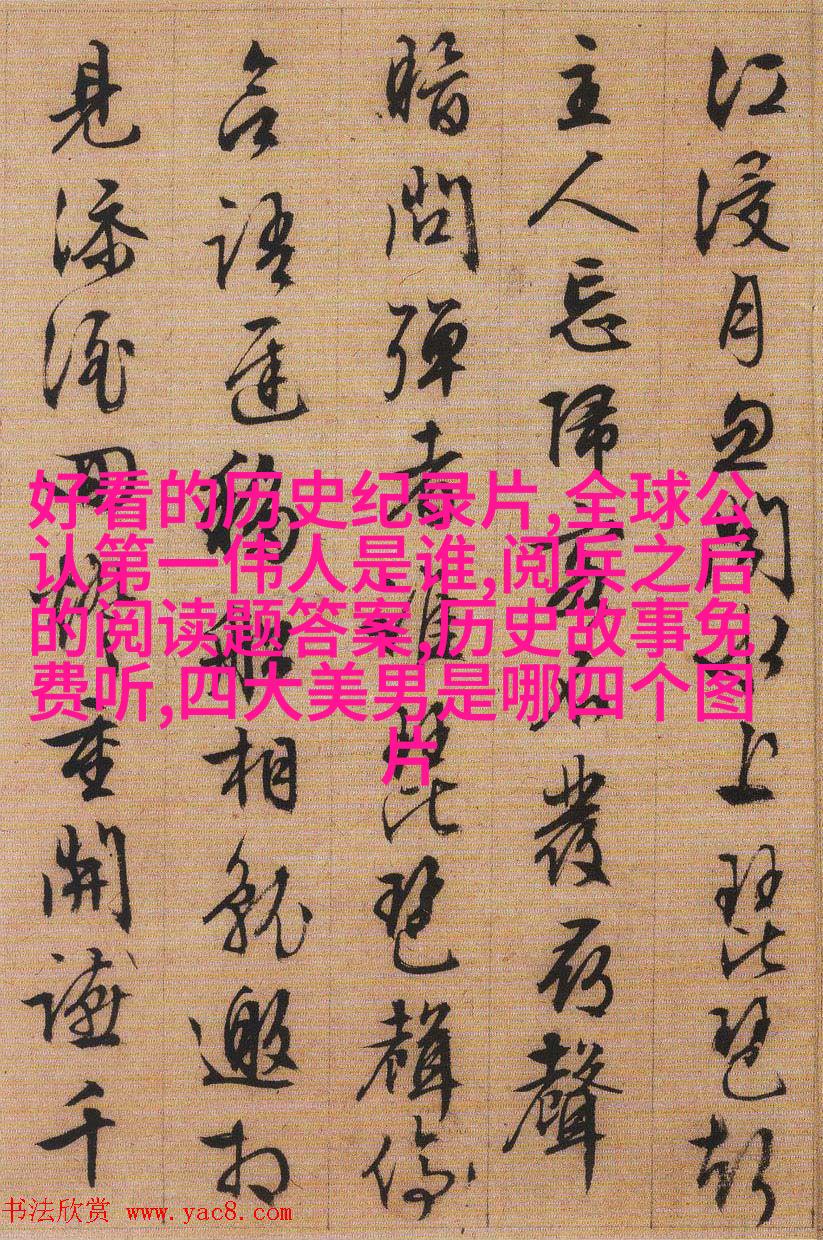 江浸月忽聞水上琵琶
主人忘歸客不發尋聲
暗問彈者誰琵琶聲停
言語遲移船相就邀相
見添酒回燈重開讌千
好看的历史纪录片,全球公
认第一伟人是谁,阅兵之后
的阅读题答案,历史故事免
费听,四大美男是哪四个图
片
书法欣赏 www.yac8.com